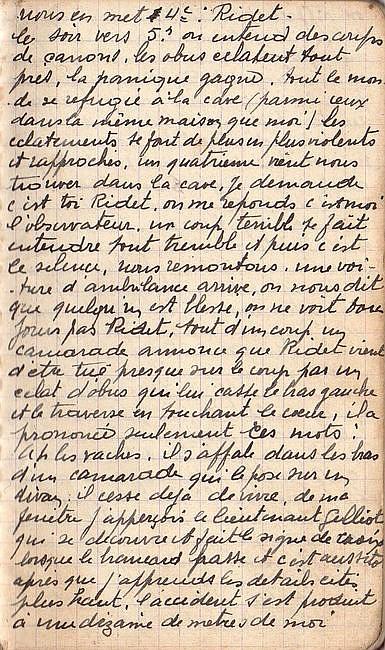 nous en met 4e : Ridet.
le soir vers 5h on entend des coups
de canons. les obus eclatent tout
pres, la panique gagne. tout le mon
de se refugie à la cave (parmi ceux
dans la même maison que moi) les
eclatements se font de plus en plus violents
et rapprochés, un quatrieme vient nous
trouver dans la cave. Je demande
c'est toi Ridet, on me reponds c'est moi
l'observateur. un coup terrible se fait
entendre tout tremble et puis c'est
le silence, nous remontons. une voi-
-ture d'ambulance arrive, on nous dit
que quelqu'un est blessé, on ne voit tou
jours pas Ridet, tout d'un coup un
camarade annonce que Ridet vient
d'être tué presque sur le coup par un
eclat d'obus qui lui casse le bras gauche
et le traverse en touchant le coeur, il a
prononcé seulement ces mots :
Ah les vaches. il s'affale dans les bras
d'un camarade qui le pose sur un
divan, il cesse dejà de vivre, de ma
fenêtre j'apperçois le lieutenant Gelliot
qui se decouvre et fait le signe de croix
lorsque le brancard passe et c'est aussitot
apres que j'apprends les details cités
plus haut, l'accident s'est produit
à une dizaine de metres de moi